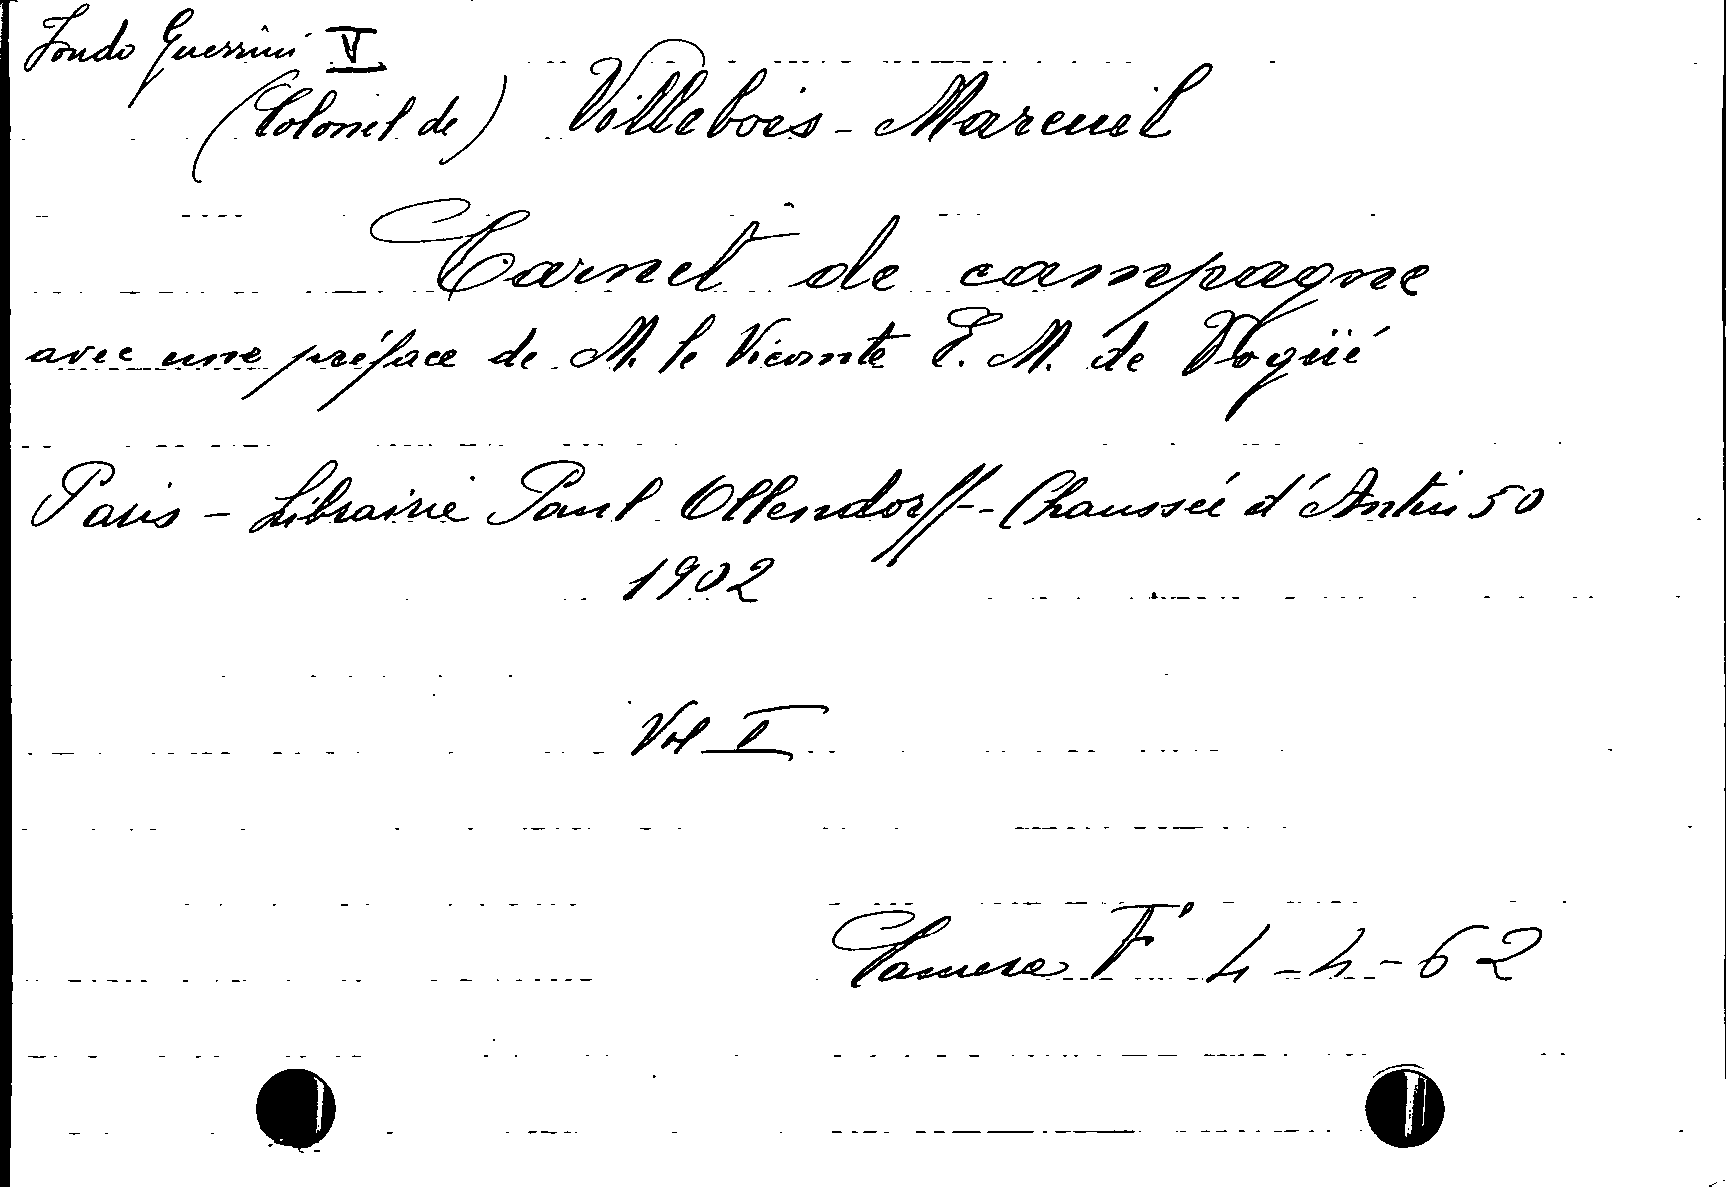 Fondo Guerrini V
(Colonel de) Villebois-Mareuil
Carnet de campagne
avec une préface de M. le Vicomte E. M. de Vogüé
Paris - Librairie Paul Ollendorff - Chaussée d'Antin 50
1902
Vol I
Camera F' 4-4-62